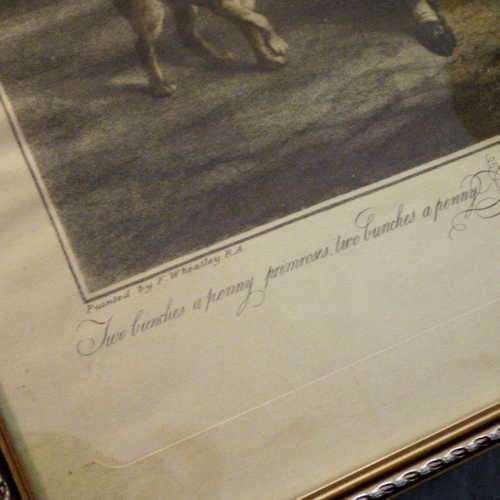 Painted by F. Wheatley R.A
Two bunches a penny primroses, two bunches a penny